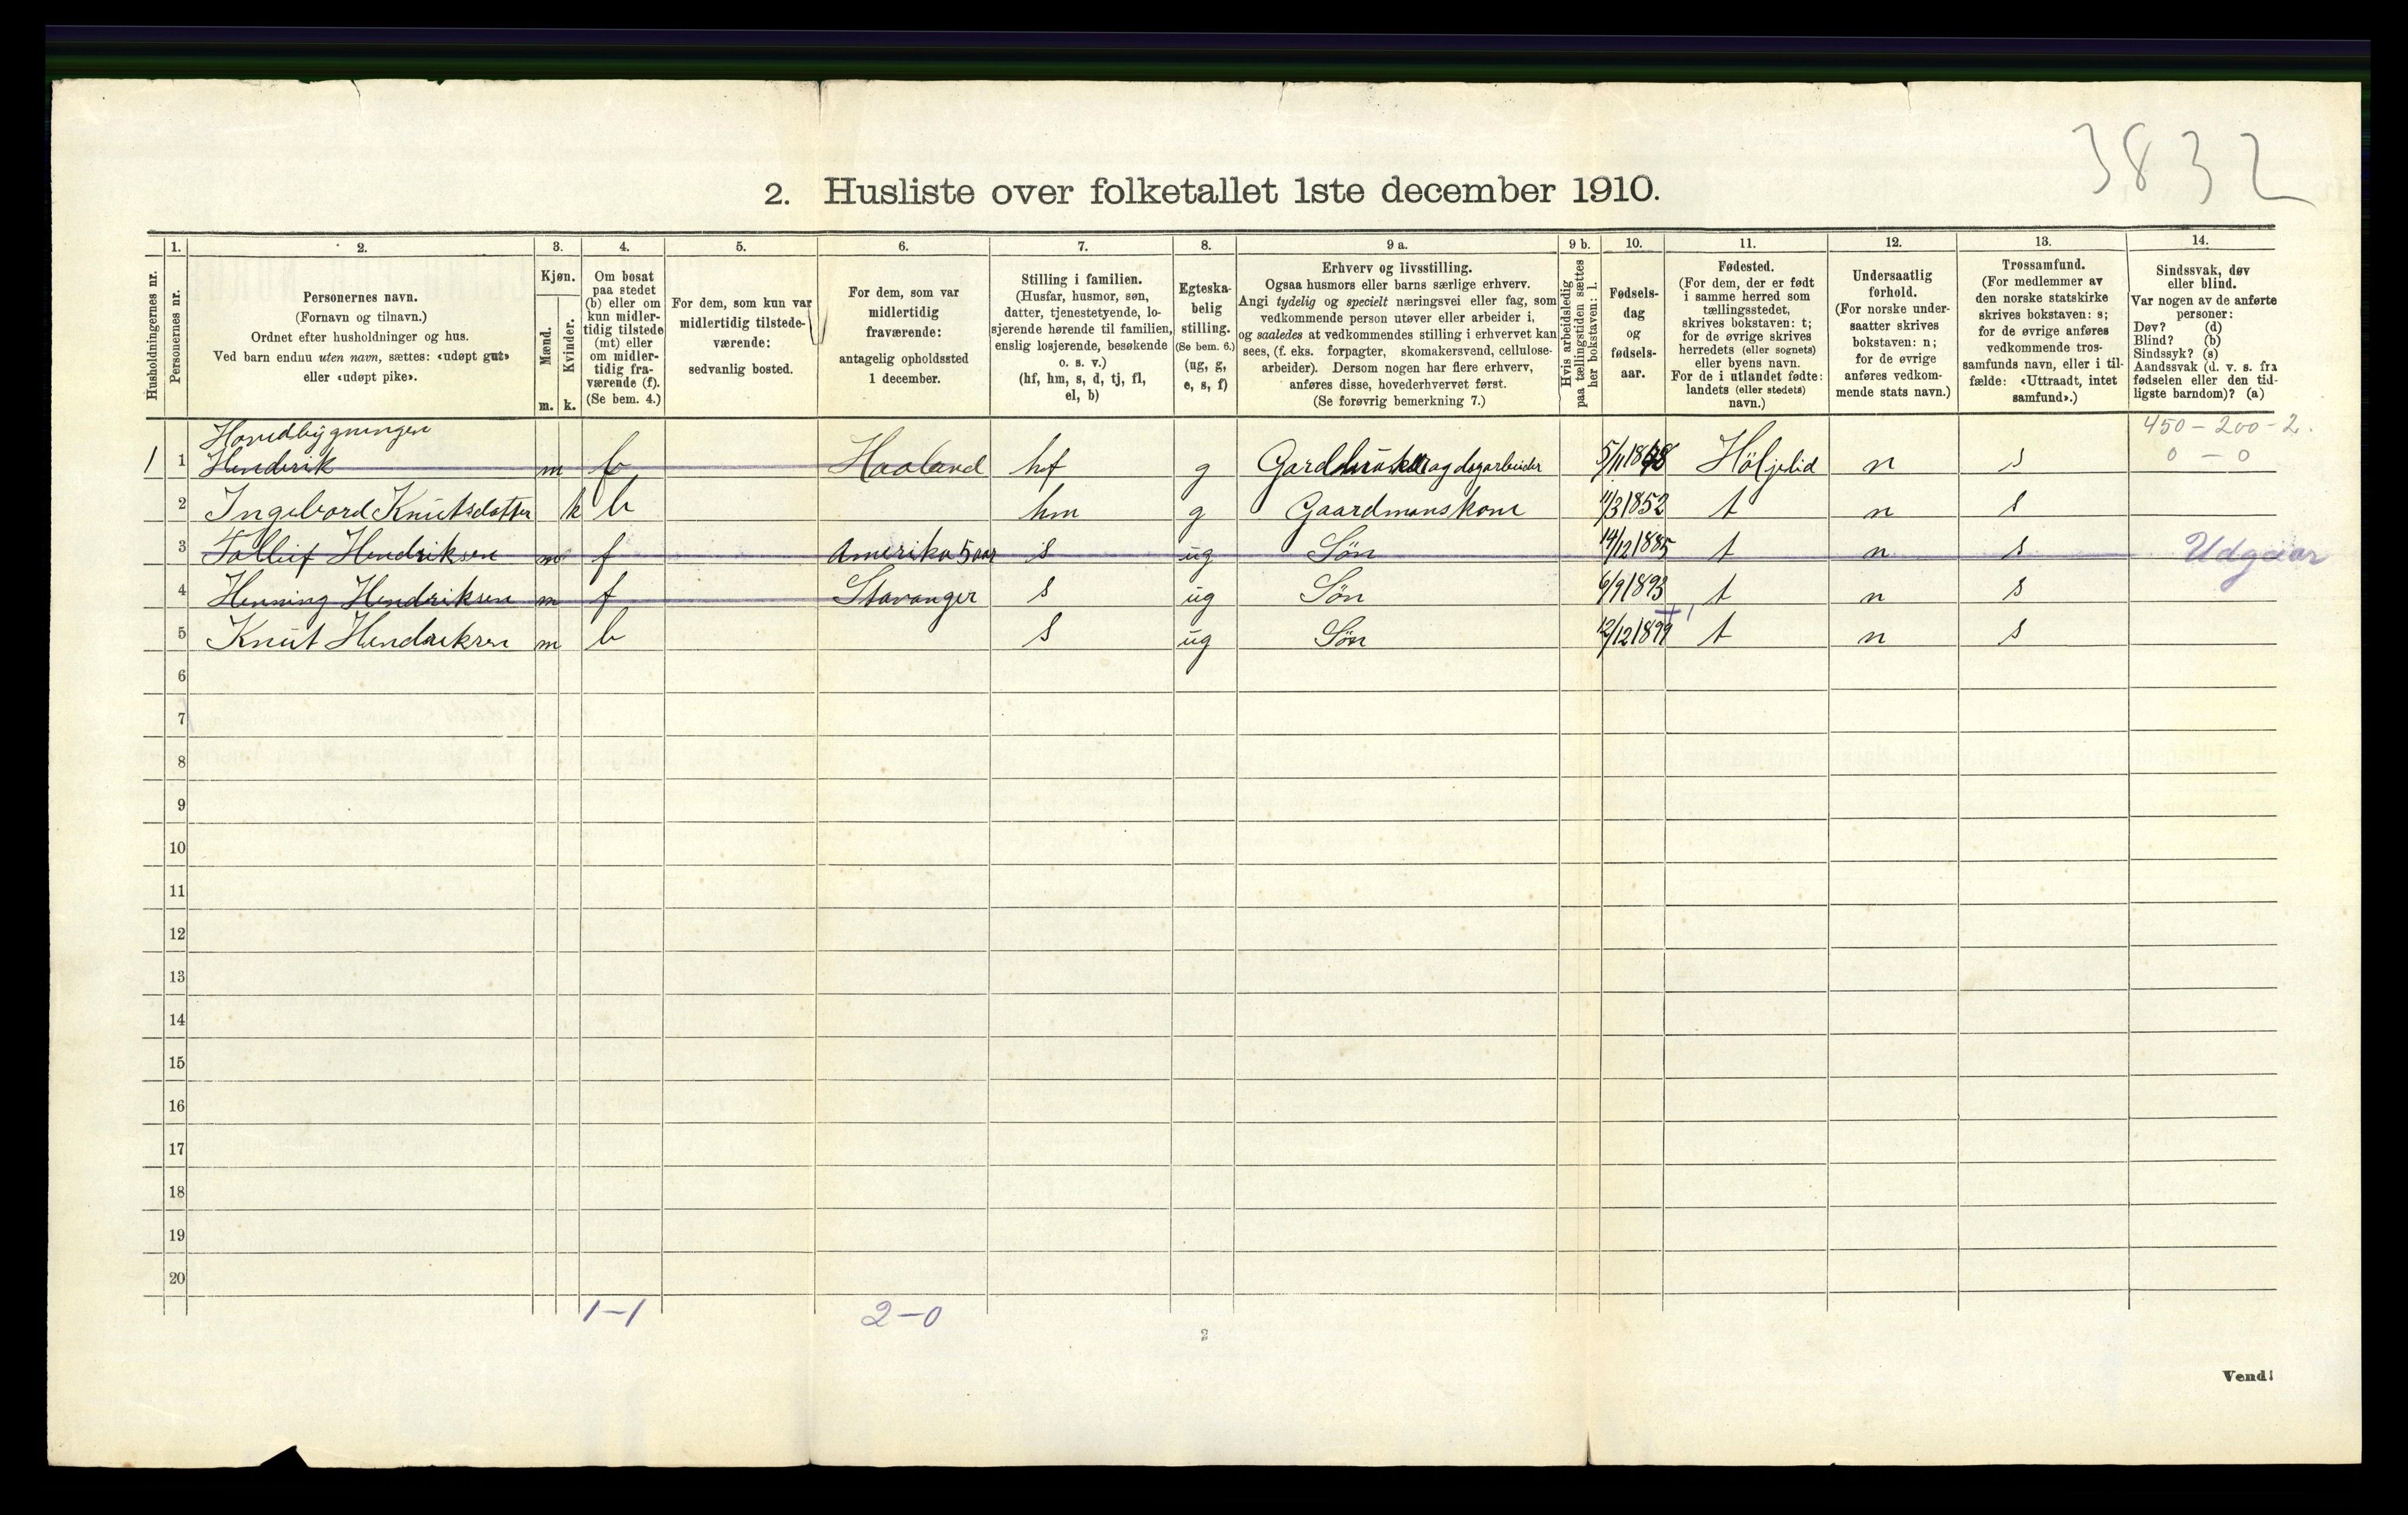 3832
2. Husliste over folketallet 1ste december 1910.
Husholdningernes nr.
1.
Personernes nr.
2.
Personernes navn.
(Fornavn og tilnavn.)
Ordnet efter husholdninger og hus.
Ved barn endnu uten navn, sættes: «udøpt gut»
eller «udøpt pike».
3.
Kjøn.
Mænd.
Kvinder.
m. k.
4.
Om bosat
paa stedet
(b) eller om
kun midler-
tidig tilstede
(mt) eller
om midler-
tidig fra-
værende (f).
(Se bem. 4.)
5.
For dem, som kun var
midlertidig tilstede-
værende:
sedvanlig bosted.
6.
For dem, som var
midlertidig
fraværende:
antagelig opholdssted
1 december.
7.
Stilling i familien.
(Husfar, husmor, søn,
datter, tjenestetyende, lo-
sjerende hørende til familien,
enslig losjerende, besøkende
o. s. v.)
(hf, hm, s, d, tj, fl,
el, b)
8.
Egteska-
belig
stilling.
(Se bem. 6.)
(ug, g,
e, s, f)
9 a.
Erhverv og livsstilling.
Ogsaa husmors eller barns særlige erhverv.
Angi tydelig og specielt næringsvei eller fag, som
vedkommende person utøver eller arbeider i,
og saaledes at vedkommendes stilling i erhvervet kan
sees, (f. eks. forpagter, skomakersvend, cellulose-
arbeider). Dersom nogen har flere erhverv,
anføres disse, hovederhvervet først.
(Se forøvrig bemerkning 7.)
9 b.
Hvis arbeidsledig
paa tællingstiden sættes
her bokstaven: l.
10.
Fødsels-
dag
og
fødsels-
aar.
11.
Fødested.
(For dem, der er født
i samme herred som
tællingsstedet,
skrives bokstaven: t;
for de øvrige skrives
herredets (eller sognets)
eller byens navn.
For de i utlandet fødte:
landets (eller stedets)
navn.)
12.
Undersaatlig
forhold.
(For norske under-
saatter skrives
bokstaven: n;
for de øvrige
anføres vedkom-
mende stats navn.)
13.
Trossamfund.
(For medlemmer av
den norske statskirke
skrives bokstaven: s;
for de øvrige anføres
vedkommende tros-
samfunds navn, eller i til-
fælde: «Uttraadt, intet
samfund».)
14.
Sindssvak, døv
eller blind.
Var nogen av de anførte
personer:
Døv? (d)
Blind? (b)
Sindssyk? (s)
Aandssvak (d. v. s. fra
fødselen eller den tid-
ligste barndom)? (a)
Hovedbygningen
450-200-2.
0-0
1 1 Hendrik m Haaland hf g Gardbruker og dagarbeider Höljelid n s
2 Ingebord Knutsdatter k b hm g Gaardmanskone 11/3 1852 t n s
3 Tollif Hendriksen m f Amerika 5 aar s ug Søn 14/12 1885 t n s Udgaar
4 Henning Hendriksen m f Stavanger s ug Søn 6/9 1893 t n s
5 Knut Hendriksen m b s ug Søn t n s
6
7
8
9
10
11
12
13
14
15
16
17
18
19
20
1-1 2-0
2
Vend!